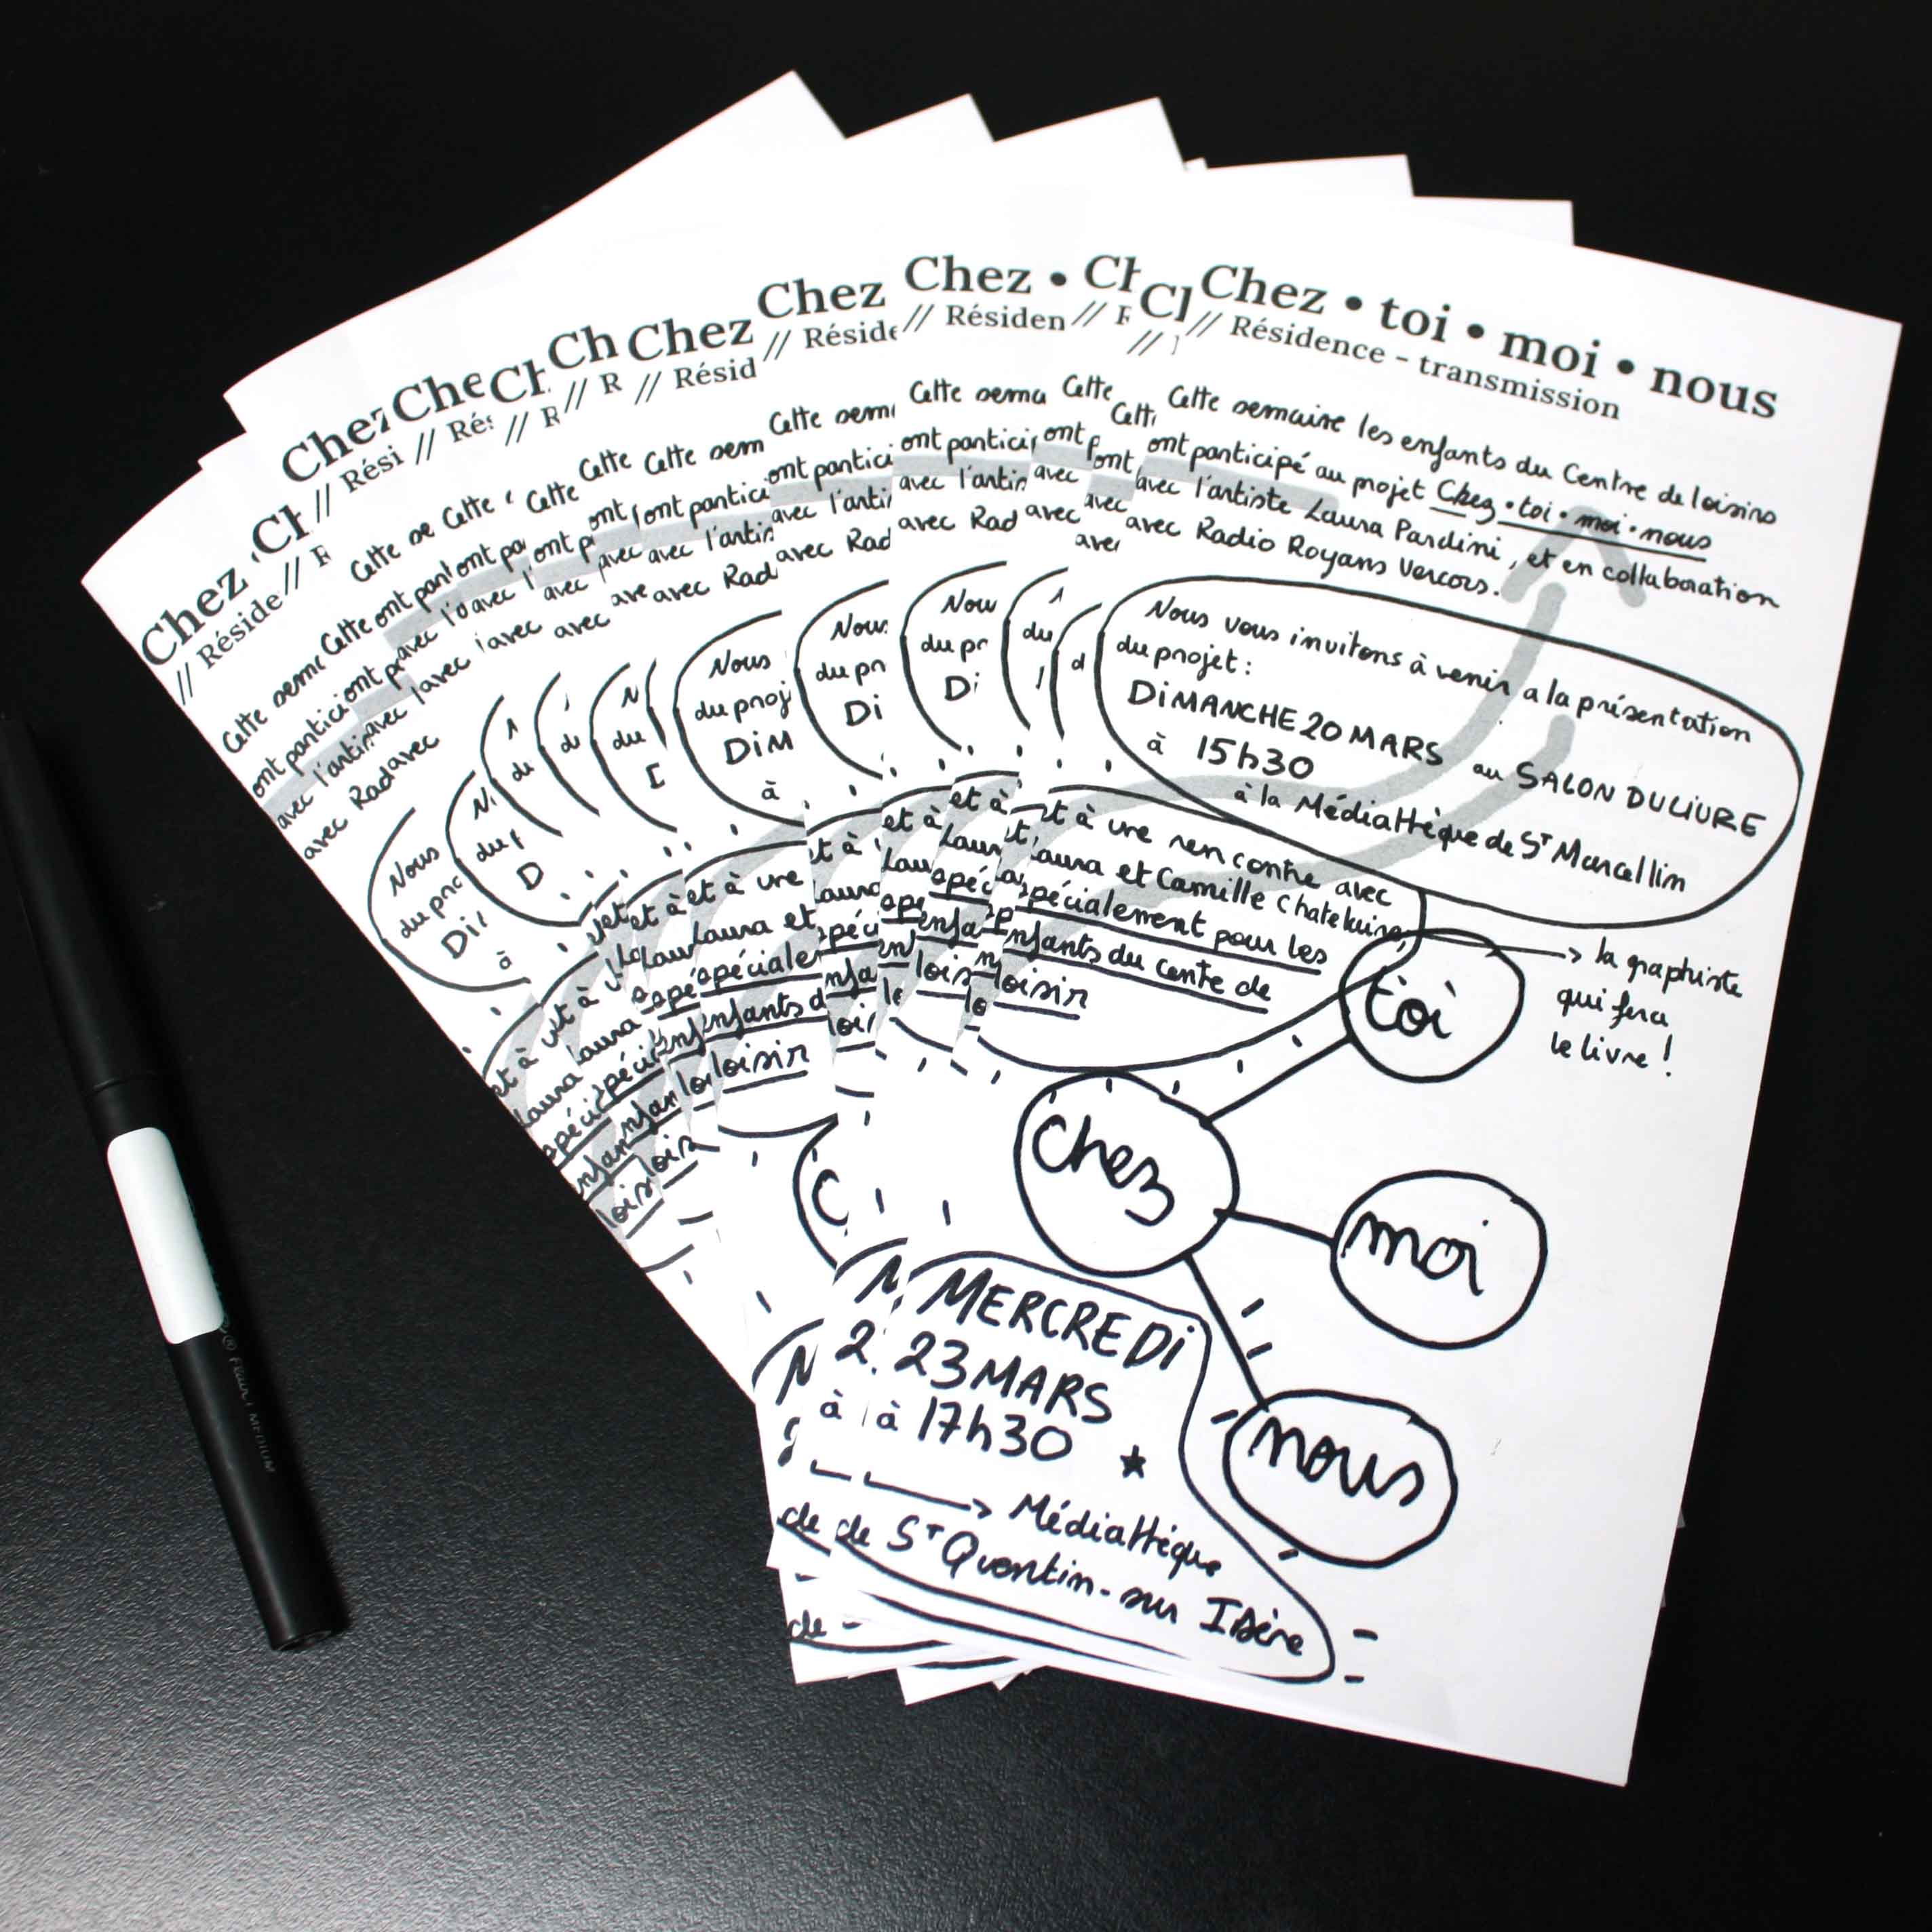 Chez • toi • moi • nous
// Résidence - transmission
Cette semaine les enfants du Centre de loisirs
ont participé au projet Chez • toi • moi • nous
avec l'artiste Laura Pardini, et en collaboration
avec Radio Royans Vercors.
Nous vous invitons à venir a la présentation
du projet :
DiMANCHE 20 MARS au SALON DU LIVRE
à 15h30
à la Médiathèque de St Marcellin
et à une rencontre avec
Laura et Camille Chatelaine,
spécialement pour les
enfants du cente de
loisir
la graphiste
qui fera
le livre !
toi
chez
moi
nous
MERCREDi
23 MARS
à 17h30
Médiathèque
de St Quentin-sur Isère
FLAIR MEDIUM